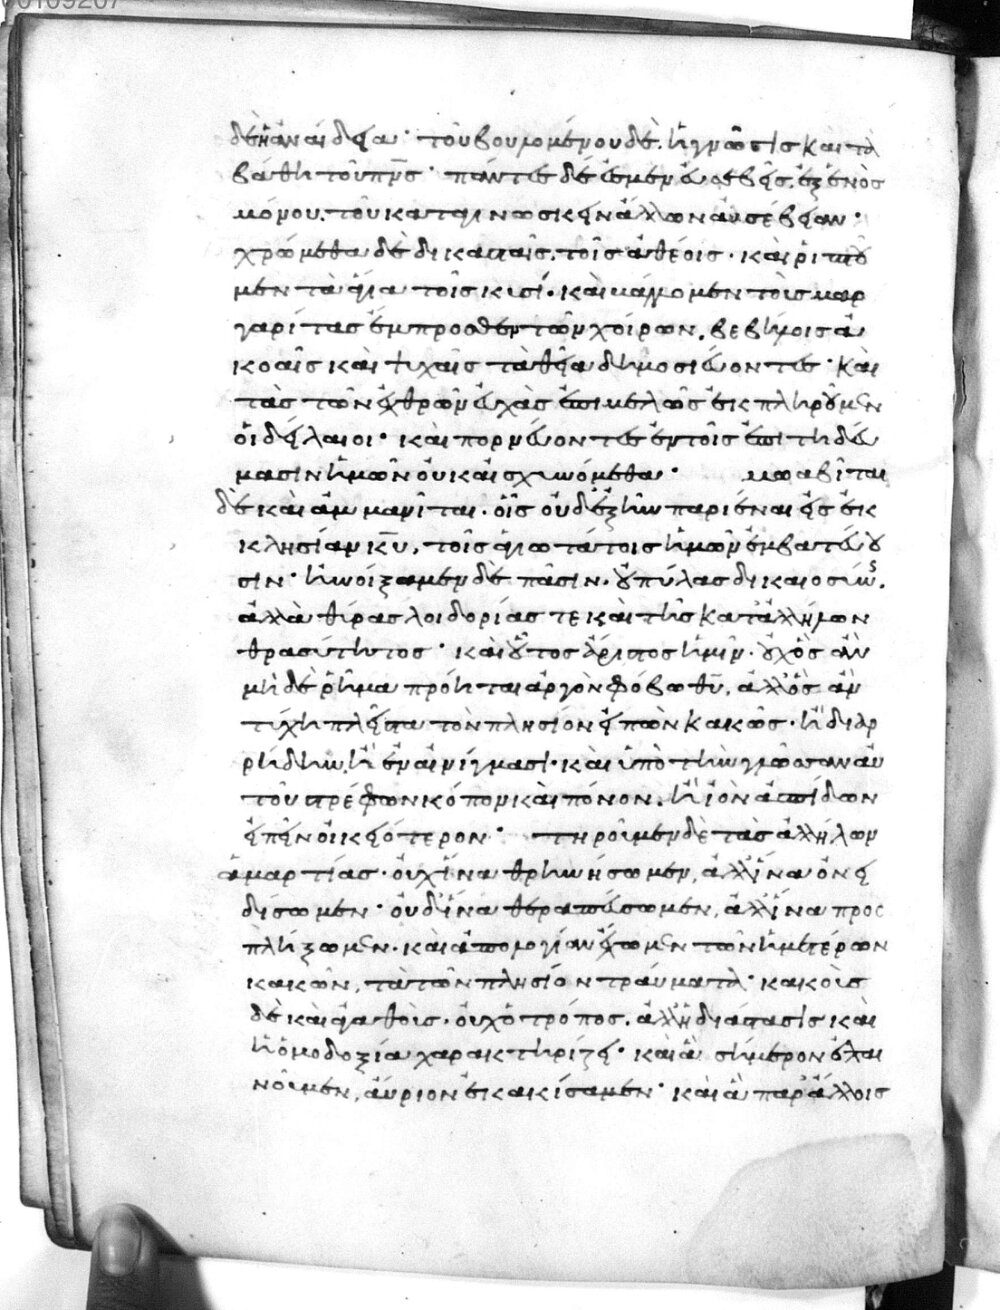 δὲ ἡ ἀναίδεια· τοῦ βουλομένου δὲ ἡ γνῶσις καὶ τὰ
βάθη τοῦ πν̅ς· πάντες δέ ἐσμεν εὐσεβεῖς, ἐξ ἑνὸς
μόνου, τοῦ καταγινώσκειν ἄλλων ἀσέβειαν·
χρώμεθα δὲ δικασταῖς, τοῖς ἀθέοις· καὶ ῥιπτοῦ
μεν τὰ ἅγια τοῖς κυσί· καὶ βάλλομεν τοὺς μαρ
γαρίτας ἔμπροσθεν τῶν χοίρων, βεβήλοις ἀ
κοαῖς καὶ ψυχαῖς τὰ θεῖα δημοσιεύοντες· καὶ
τὰς τῶν ἐχθρῶν εὐχὰς ἐπιμελῶς ἐκπληροῦμεν
οἱ δείλαιοι· καὶ πορνεύοντες ἐν τοῖς ἐπιτηδεύ
μασιν ἡμῶν οὐκ αἰσχυνόμεθα· μωαβῖται
δὲ καὶ ἀμμανῖται, οἷς οὐδ' ἐξῆν παριέναι εἰς ἐκ
κλησίαν κ̅υ̅, τοῖς ἁγιωτάτοις ἡμῶν ἐμβατεύου
σιν· ἠνοίξαμεν δὲ πᾶσιν, οὐ πύλας δικαιοσύνης,
ἀλλὰ θύρας λοιδορίας τε καὶ τῆς κατ' ἀλλήλων
θρασύτητος· καὶ οὗτος ἄριστος ἡμῖν, οὐχ ὃς ἂν
μηδὲ ῥῆμα πρόηται ἀργὸν φόβω θ̅υ̅, ἀλλ' ὃς ἂν
τύχη πλεῖστα τὸν πλησίον εἰπὼν κακῶς· ἢ διαρ
ρήδην, ἢ ἐν αἰνίγμασι· καὶ ὑπὸ τὴν γλῶσσαν αὐ
τοῦ στρέφων κόπον καὶ πόνον, ἢ ἰὸν ἀσπίδων
εἰπεῖν οἰκειότερον· τηροῦμεν δὲ τὰς ἀλλήλων
ἁμαρτίας· οὐχ ἵνα θρηνήσωμεν, ἀλλ' ἵνα ὀνει
δίσωμεν· οὐδ' ἵνα θεραπεύσωμεν, ἀλλ' ἵνα προς
πλήξωμεν· καὶ ἀπολογίαν ἔχωμεν τῶν ἡμετέρων
κακῶν, τὰ τῶν πλησίον τραύματα· κακοὺς
δὲ καὶ ἀγαθοὺς, οὐχ ὁ τρόπος, ἀλλ' ἡ διάστασις καὶ
ἡ ὁμοδοξία χαρακτηρίζει· καὶ ἃ σήμερον ἐπαι
νοῦμεν, αὔριον ἐκακίσαμεν· καὶ ἃ παρ' ἄλλοις